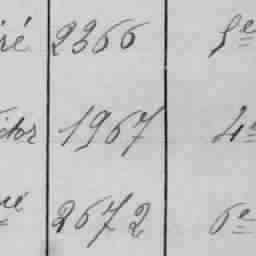 ré 2366 5e
ctor 1967 4e
né 2672 6e